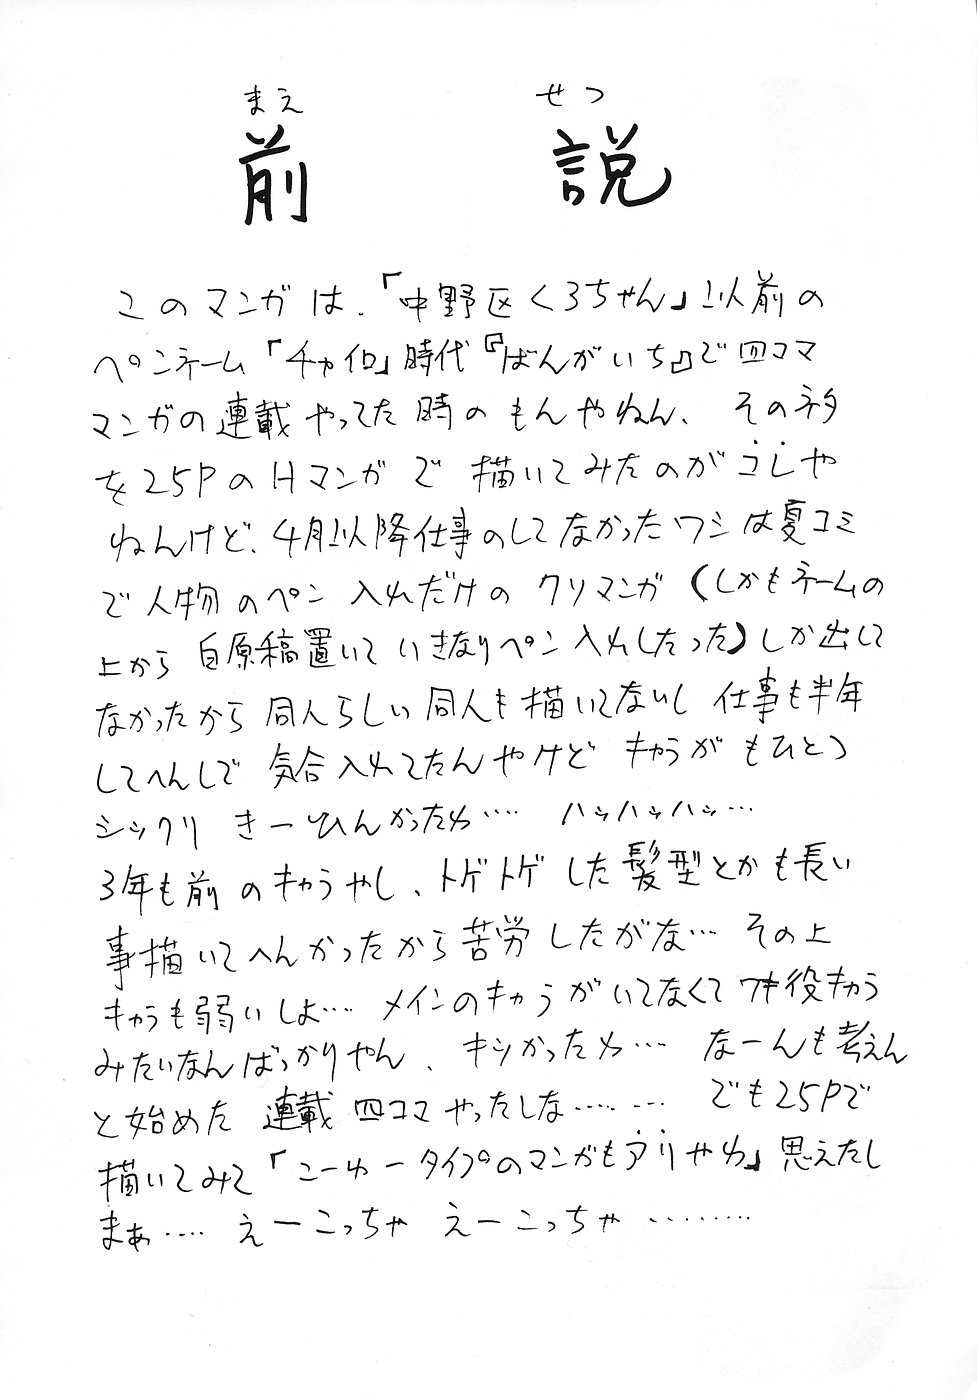 まえ せつ
前 説
このマンガは、「中野区くろちゃん」以前の
ペンネーム「チャイロ」時代『ばんがいち』で四コマ
マンガの連載やってた時のもんやねん、そのネタ
を25PのHマンガで描いてみたのがコレや
ねんけど、4月以降仕事のしてなかったワシは夏コミ
で人物のペン入れだけのクソマンガ(しかもネームの
上から白原稿置いていきなりペン入れしたった)しか出して
なかったから同人らしい同人も描いてないし仕事も半年
してへんしで気合入れてたんやけどキャラがもひとつ
シックリきーひんかったわ…‥ハッハッハッ…
3年も前のキャラやし、トゲトゲした髪型とかも長い
事描いてへんかったから苦労したがな…その上
キャラも弱いしよ…‥メインのキャラがいてなくてワキ役キャラ
みたいなんばっかりやん、キツかったわ…なーんも考えん
と始めた連載四コマやったしな………でも25Pで
描いてみて「こーゆータイプのマンガもアリやわ」思えたし
まぁ…‥えーこっちゃえーこっちゃ………